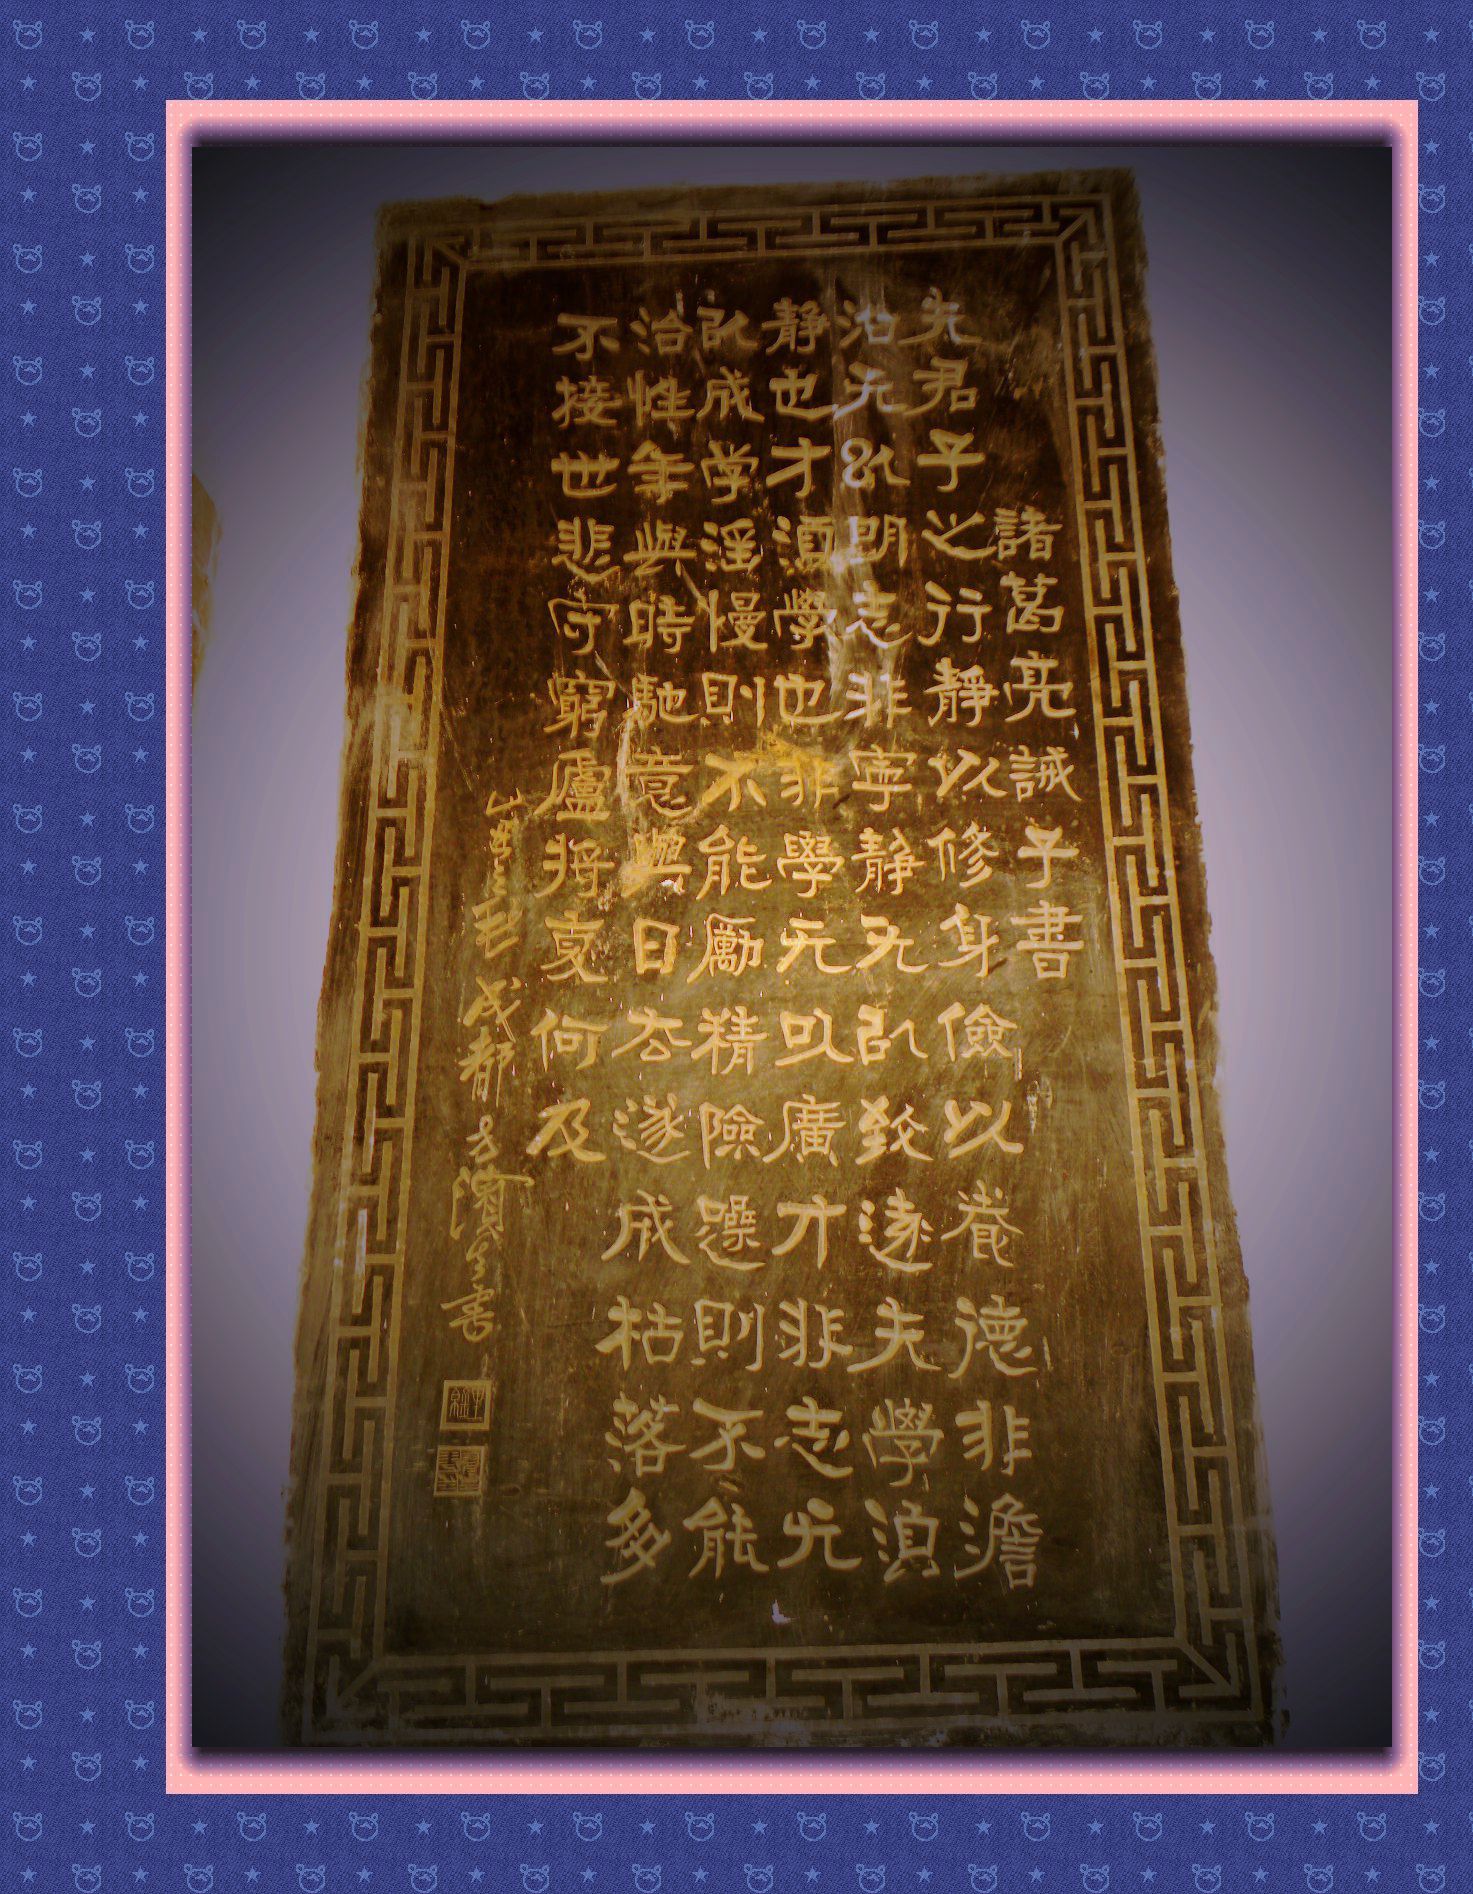 諸葛亮誡子書
夫君子之行靜以修身儉以養德非澹
泊无以明志非寧静无以致遠夫學須
静也才須學也非學无以廣才非志无
以成学淫慢則不能勵精險躁則不能
治性年與時馳意與日去遂成枯落多
不接世悲守窮廬將复何及
成都方濱生書